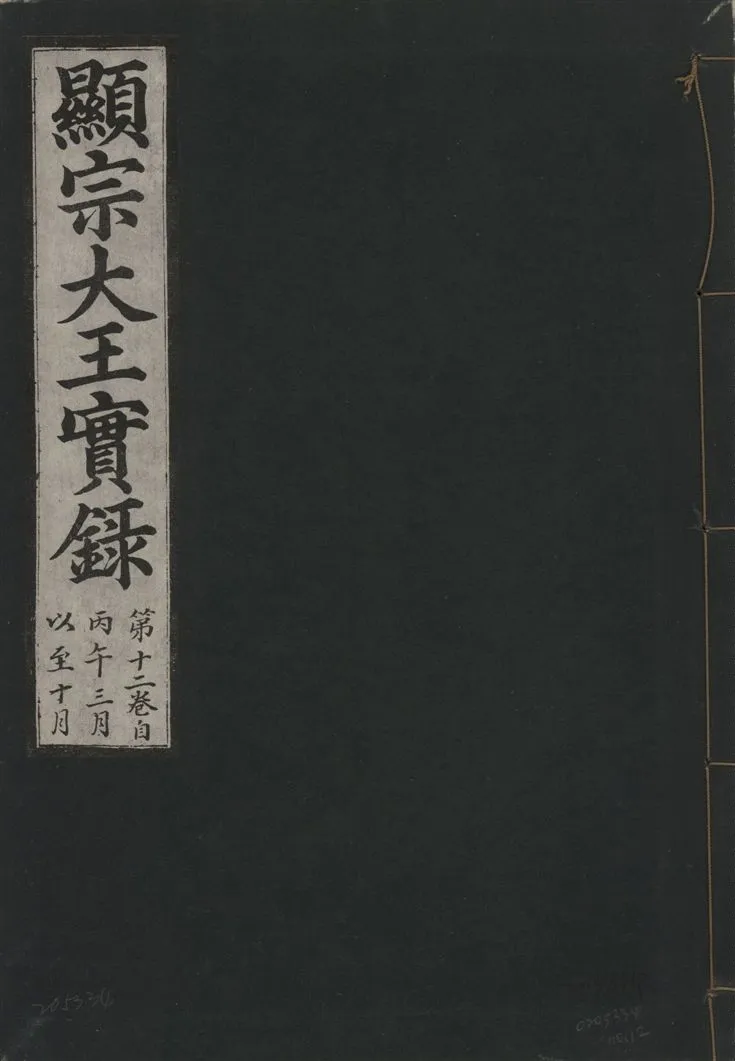 顯宗大王實錄
第十二卷自
丙午三月
以至十月
205334